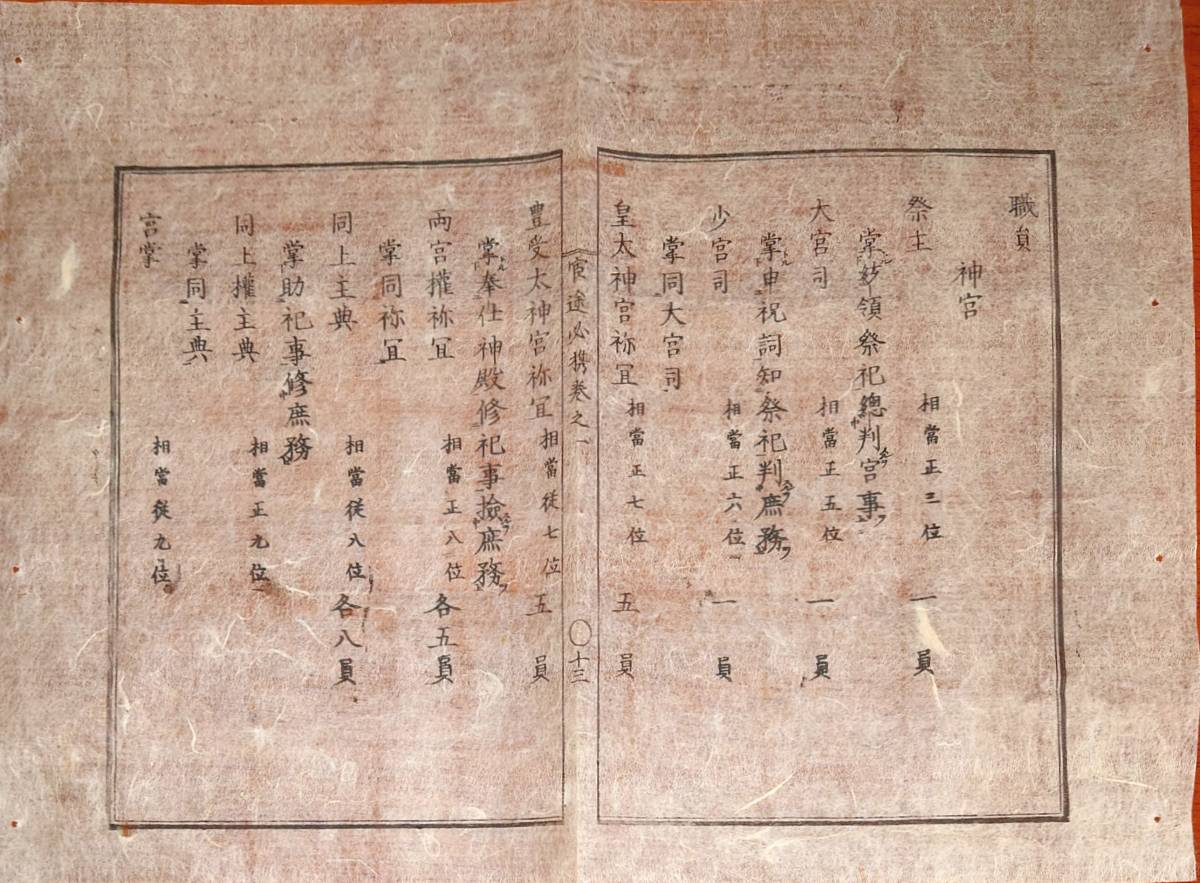 職員
神宮
祭主 相當正三位 一員
掌紗領祭祀總判宮事
大宮司 相當正五位 一員
掌申祝詞知祭祀判庶務
少宮司 相當正六位 一員
掌同大宮司
皇太神宮祢冝 相當正七位 五員
宦途必携卷之一 〇十三
豊受太神宮祢冝 相當従七位 五員
掌奉仕神殿修祀事撿庶務
両宮權祢冝 相當正八位 各五員
掌同祢冝
同上主典 相當従八位 各八員
掌助祀事修庶務
同上權主典 相當正九位
掌同主典
宮掌 相當従九位